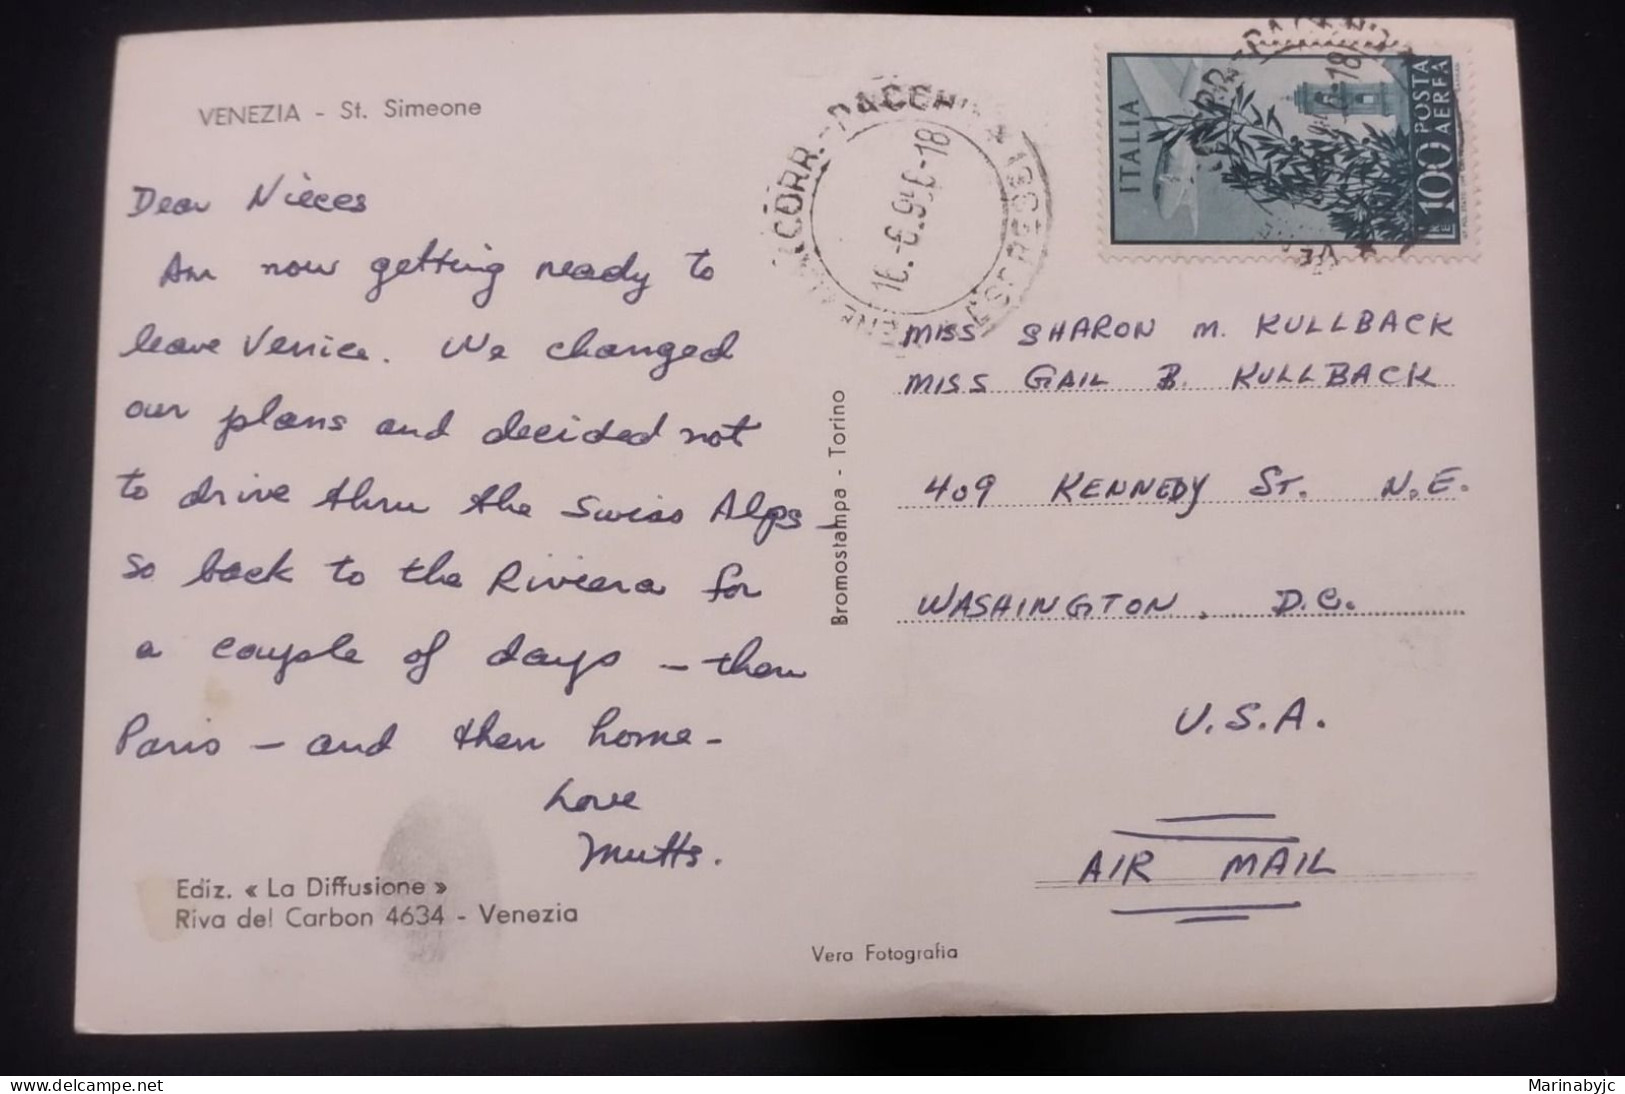 VENEZIA - St. Simeone
Dear Nieces
Am now getting ready to
leave Venice. We changed
our plans and decided not
to drive thru the Swiss Alps -
so back to the Riviera for
a couple of days - then
Paris - and then home -
Love
Mutts.
Ediz. « La Diffusione »
Riva del Carbon 4634 - Venezia
Bromostampa - Torino
Vera Fotografia
CORR.-PACCHI
16.-6.956-18
ESPRESSI
ITALIA
POSTA
AEREA
LIRE 100
MISS SHARON M. KULLBACK
MISS GAIL B. KULLBACK
409 KENNEDY ST. N.E.
WASHINGTON, D.C.
U.S.A.
AIR MAIL
delcampe.net
Marinabyjc